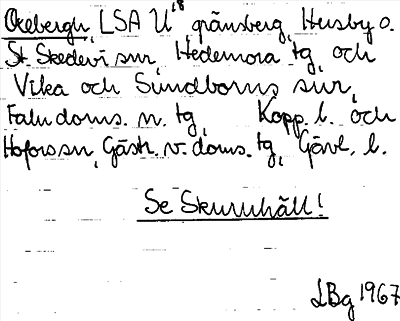 Oxebergh, LSA U⁸ gränsberg, Husby o.
St. Skedevi snr, Hedemora tg, och
Vika och Sundborns snr,
Falu doms. n. tg, Kopp. l. och
Hofors sn, Gästr. v. doms. tg, Gävl. l.
Se Skuruhäll!
LBg 1967